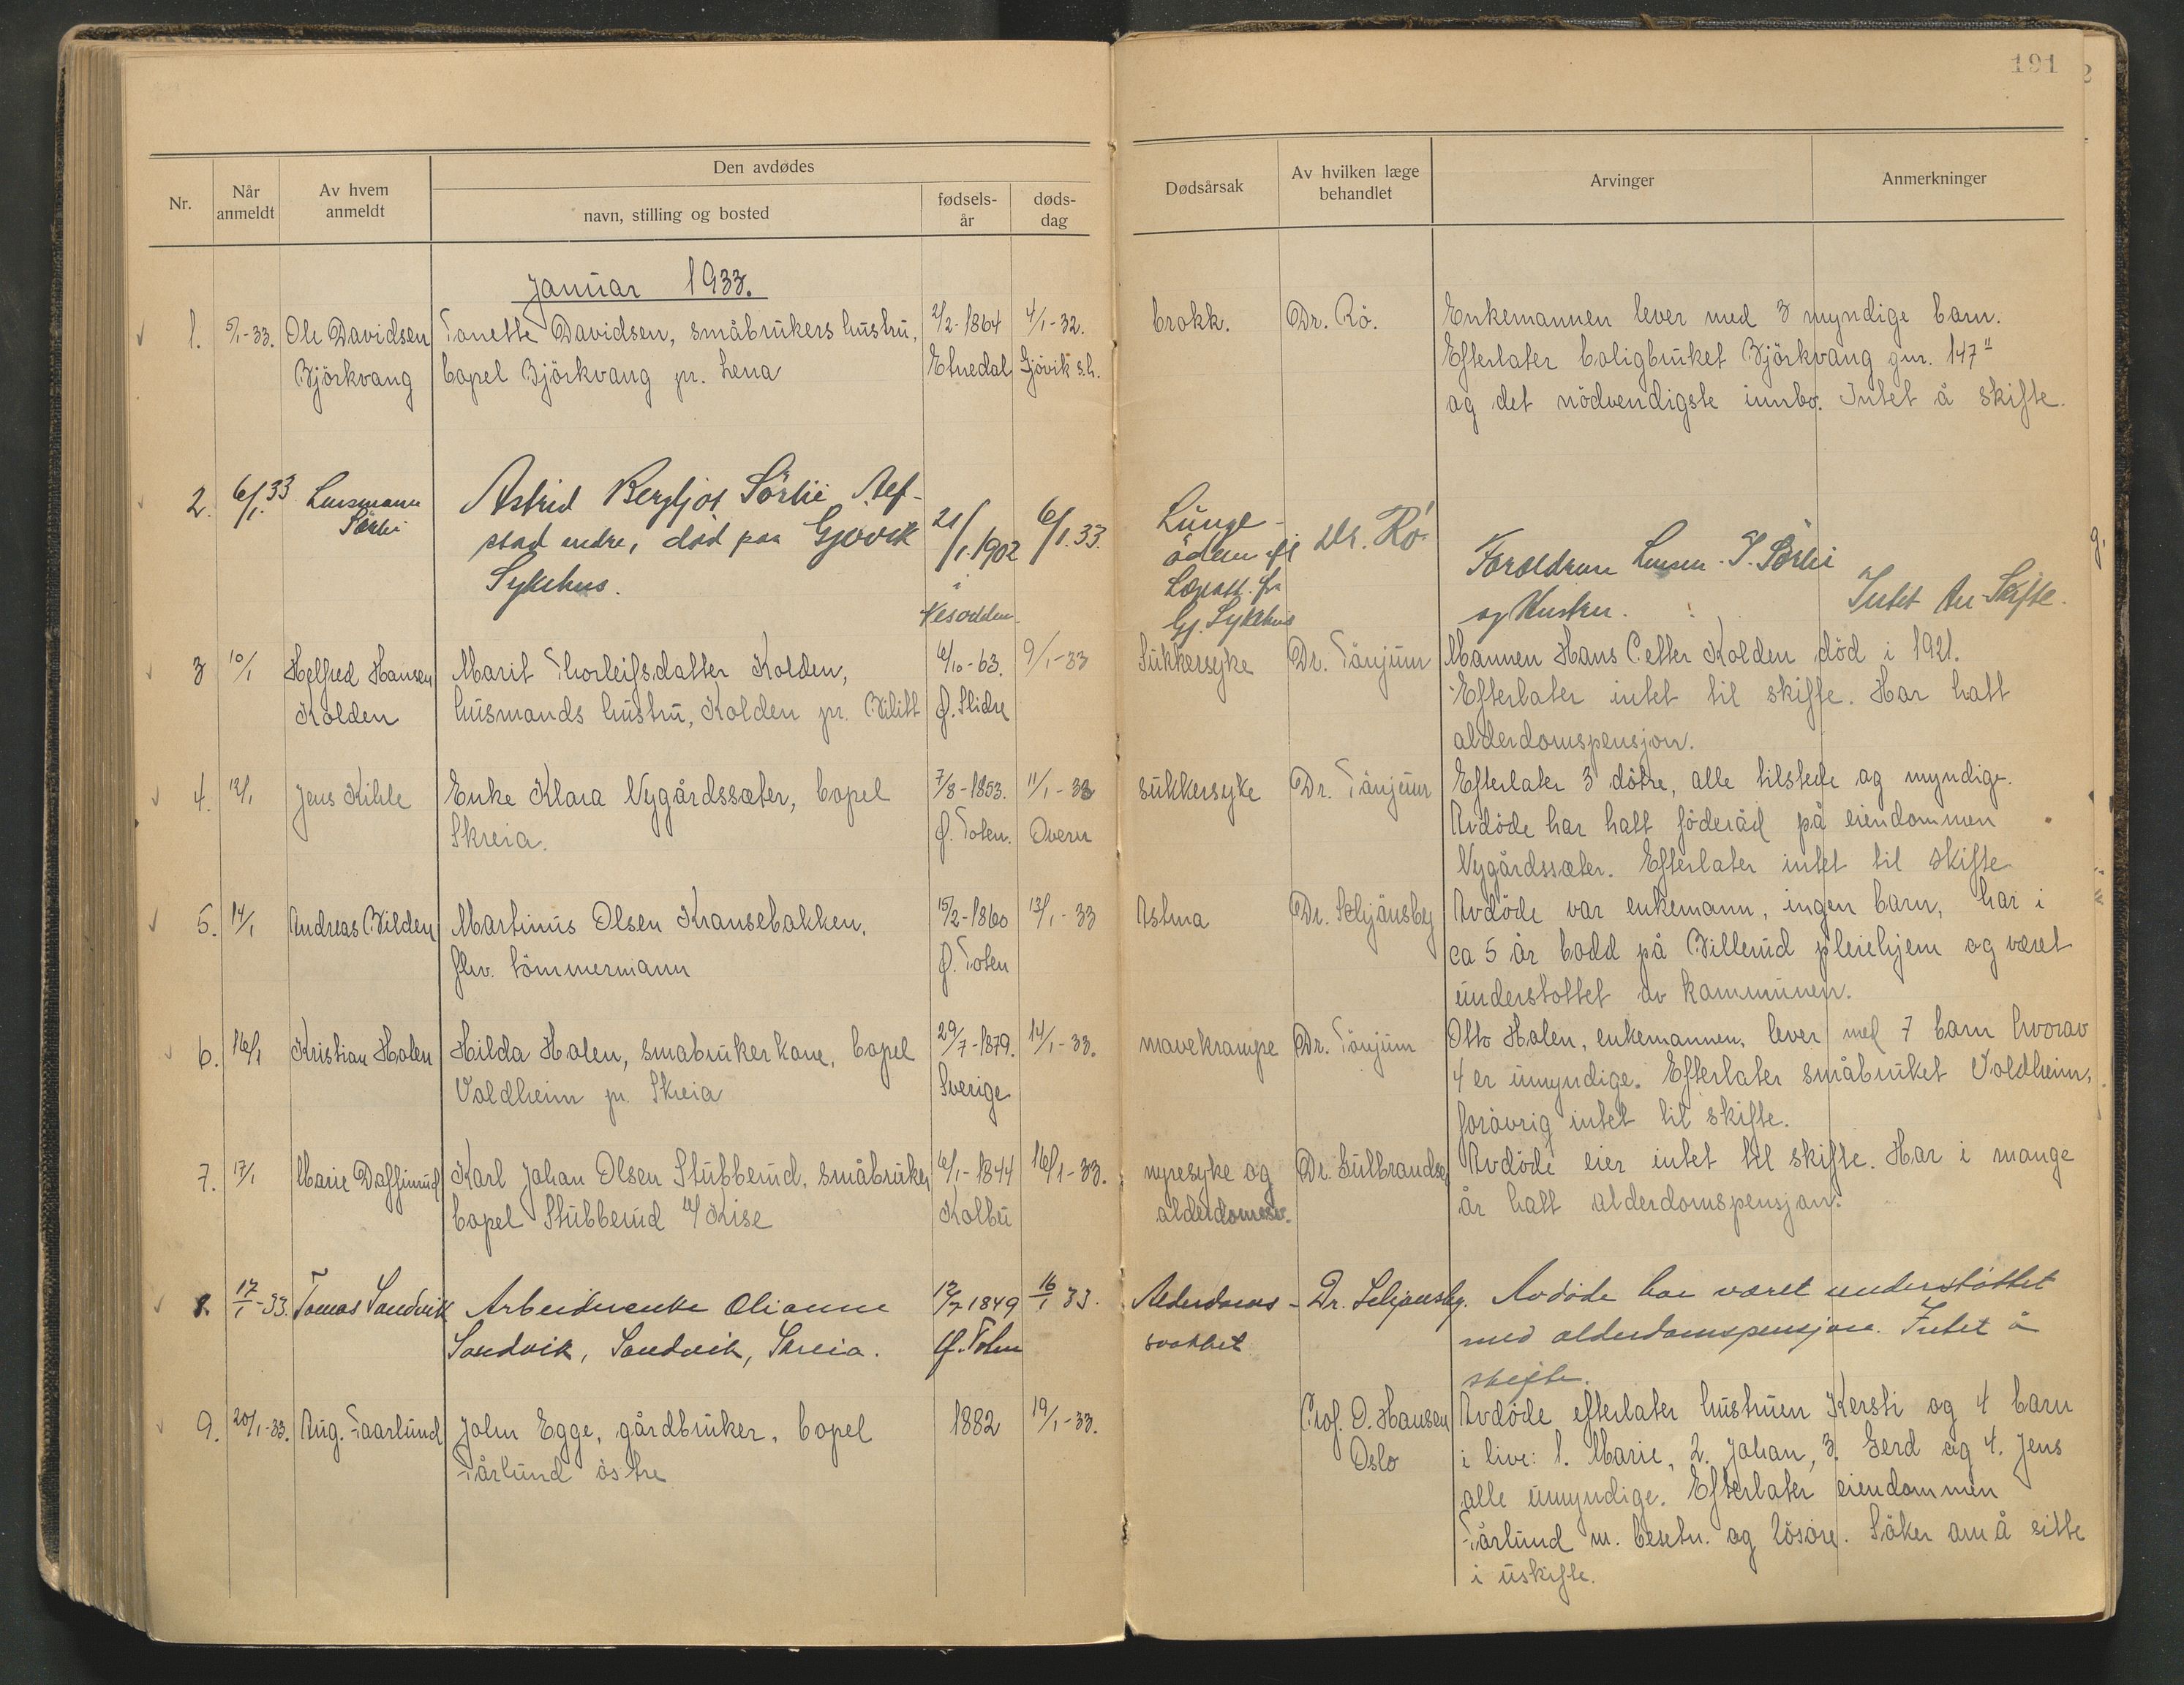 191
Den avdødes
Nr.
Når anmeldt
Av hvem anmeldt
navn, stilling og bosted
fødsels-år
døds-dag
Dødsårsak
Av hvilken læge behandlet
Arvinger
Anmerkninger
Januar 1933.
1. 5/1-33. Ole Davidsen Tonette Davidsen, småbrukers hustru, 2/2-1864 4/1-32. brokk. Dr. Rö. Enkemannen lever med 3 myndige barn.
Björkvang bopel Björkvang pr. Lena Etnedal Gjövik s.h. Efterlater boligbruket Björkvang gnr. 147
og det nödvendigste innbo. Intet å skifte.
2. 6/1.33 Lensmann Astrid Bergljot Sörlie, Alf-
Sörlie stad indre, död paa Gjøvik 21/1.1902 6/1.33. Lunge-
Sykehus. i ödem Dr. Rö. Foreldrene Lensm. Sörlie
Nesodden. Gj. Sykehus og Hustru. Intet Skifte.
3 10/1 Helfred Hansen Marit Thorleifsdatter Kolden, 6/10-63. 9/1-33 Sukkersyke Dr. Tönjum Mannen Hans Petter Kolden död i 1921.
Kolden husmands hustru, Kolden pr. Bilitt Ø. Slidre Efterlater intet til skifte. Har hatt
alderdomspensjon.
4. 12/1 Jens Kihle Enke Klara Nygårdssæter, bopel 7/8-1853. 11/1-33 sukkersyke Dr. Tönjum Efterlater 3 dötre, alle tilstede og myndige.
Skreia. Ø. Toten. Overn Avdöde har hatt föderåd på eiendommen
Nygårdssæter. Efterlater intet til skifte
5. 14/1 Andreas Vilden Martinus Olsen Kransebakken, 15/2-1860 13/1-33 Astma Dr. Seljänsby Avdöde var enkemann, ingen barn, har i
fhv. tömmermann Ø. Toten ca 5 år bodd på Billerud pleiehjem og været
understöttet av kommunen.
6. 16/1 Kristian Holen Hilda Holen, småbrukerkone, bopel 29/7-1879. 14/1-33. mavekrampe Dr. Tönjum Otto Holen, enkemannen, lever med 7 barn hvorav
Voldheim pr. Skreia Sverige 4 er umyndige. Efterlater småbruket Voldheim,
foròvrig intet til skifte.
7. 17/1 Marie Daffinrud Karl Johan Olsen Stubberud, småbruker 6/1-1844 16/1-33. nyresyke og Dr. Gulbrandsen Avdöde eier intet til skifte. Har i mange
bopel Stubberud u/ Kise Kolbu alderdomssv. år hatt alderdomspensjon.
8. 17/1-33. Tomas Sandvik Arbeiderenke Olianne 12/7 1849 16/1 33. Alderdoms- Dr. Seljansby. Avdöde har været understöttet
Sandvik, Sandvik, Skreia. Ø. Toten svakhet med alderdomspensjon. Intet å
skifte.
9. 20/1-33. Aug. Taarlund John Egge, gårdbruker, bopel 1882 19/1-33. Prof. O. Hansen Avdöde efterlater hustruen Kersti og 4 barn
Tårlund östre Oslo i live: 1. Marie, 2. Johan, 3. Gerd og 4. Jens
alle umyndige. Efterlater eiendommen
Tårlund m. besetn. og lösöre. Söker om å sitte
i uskifte.